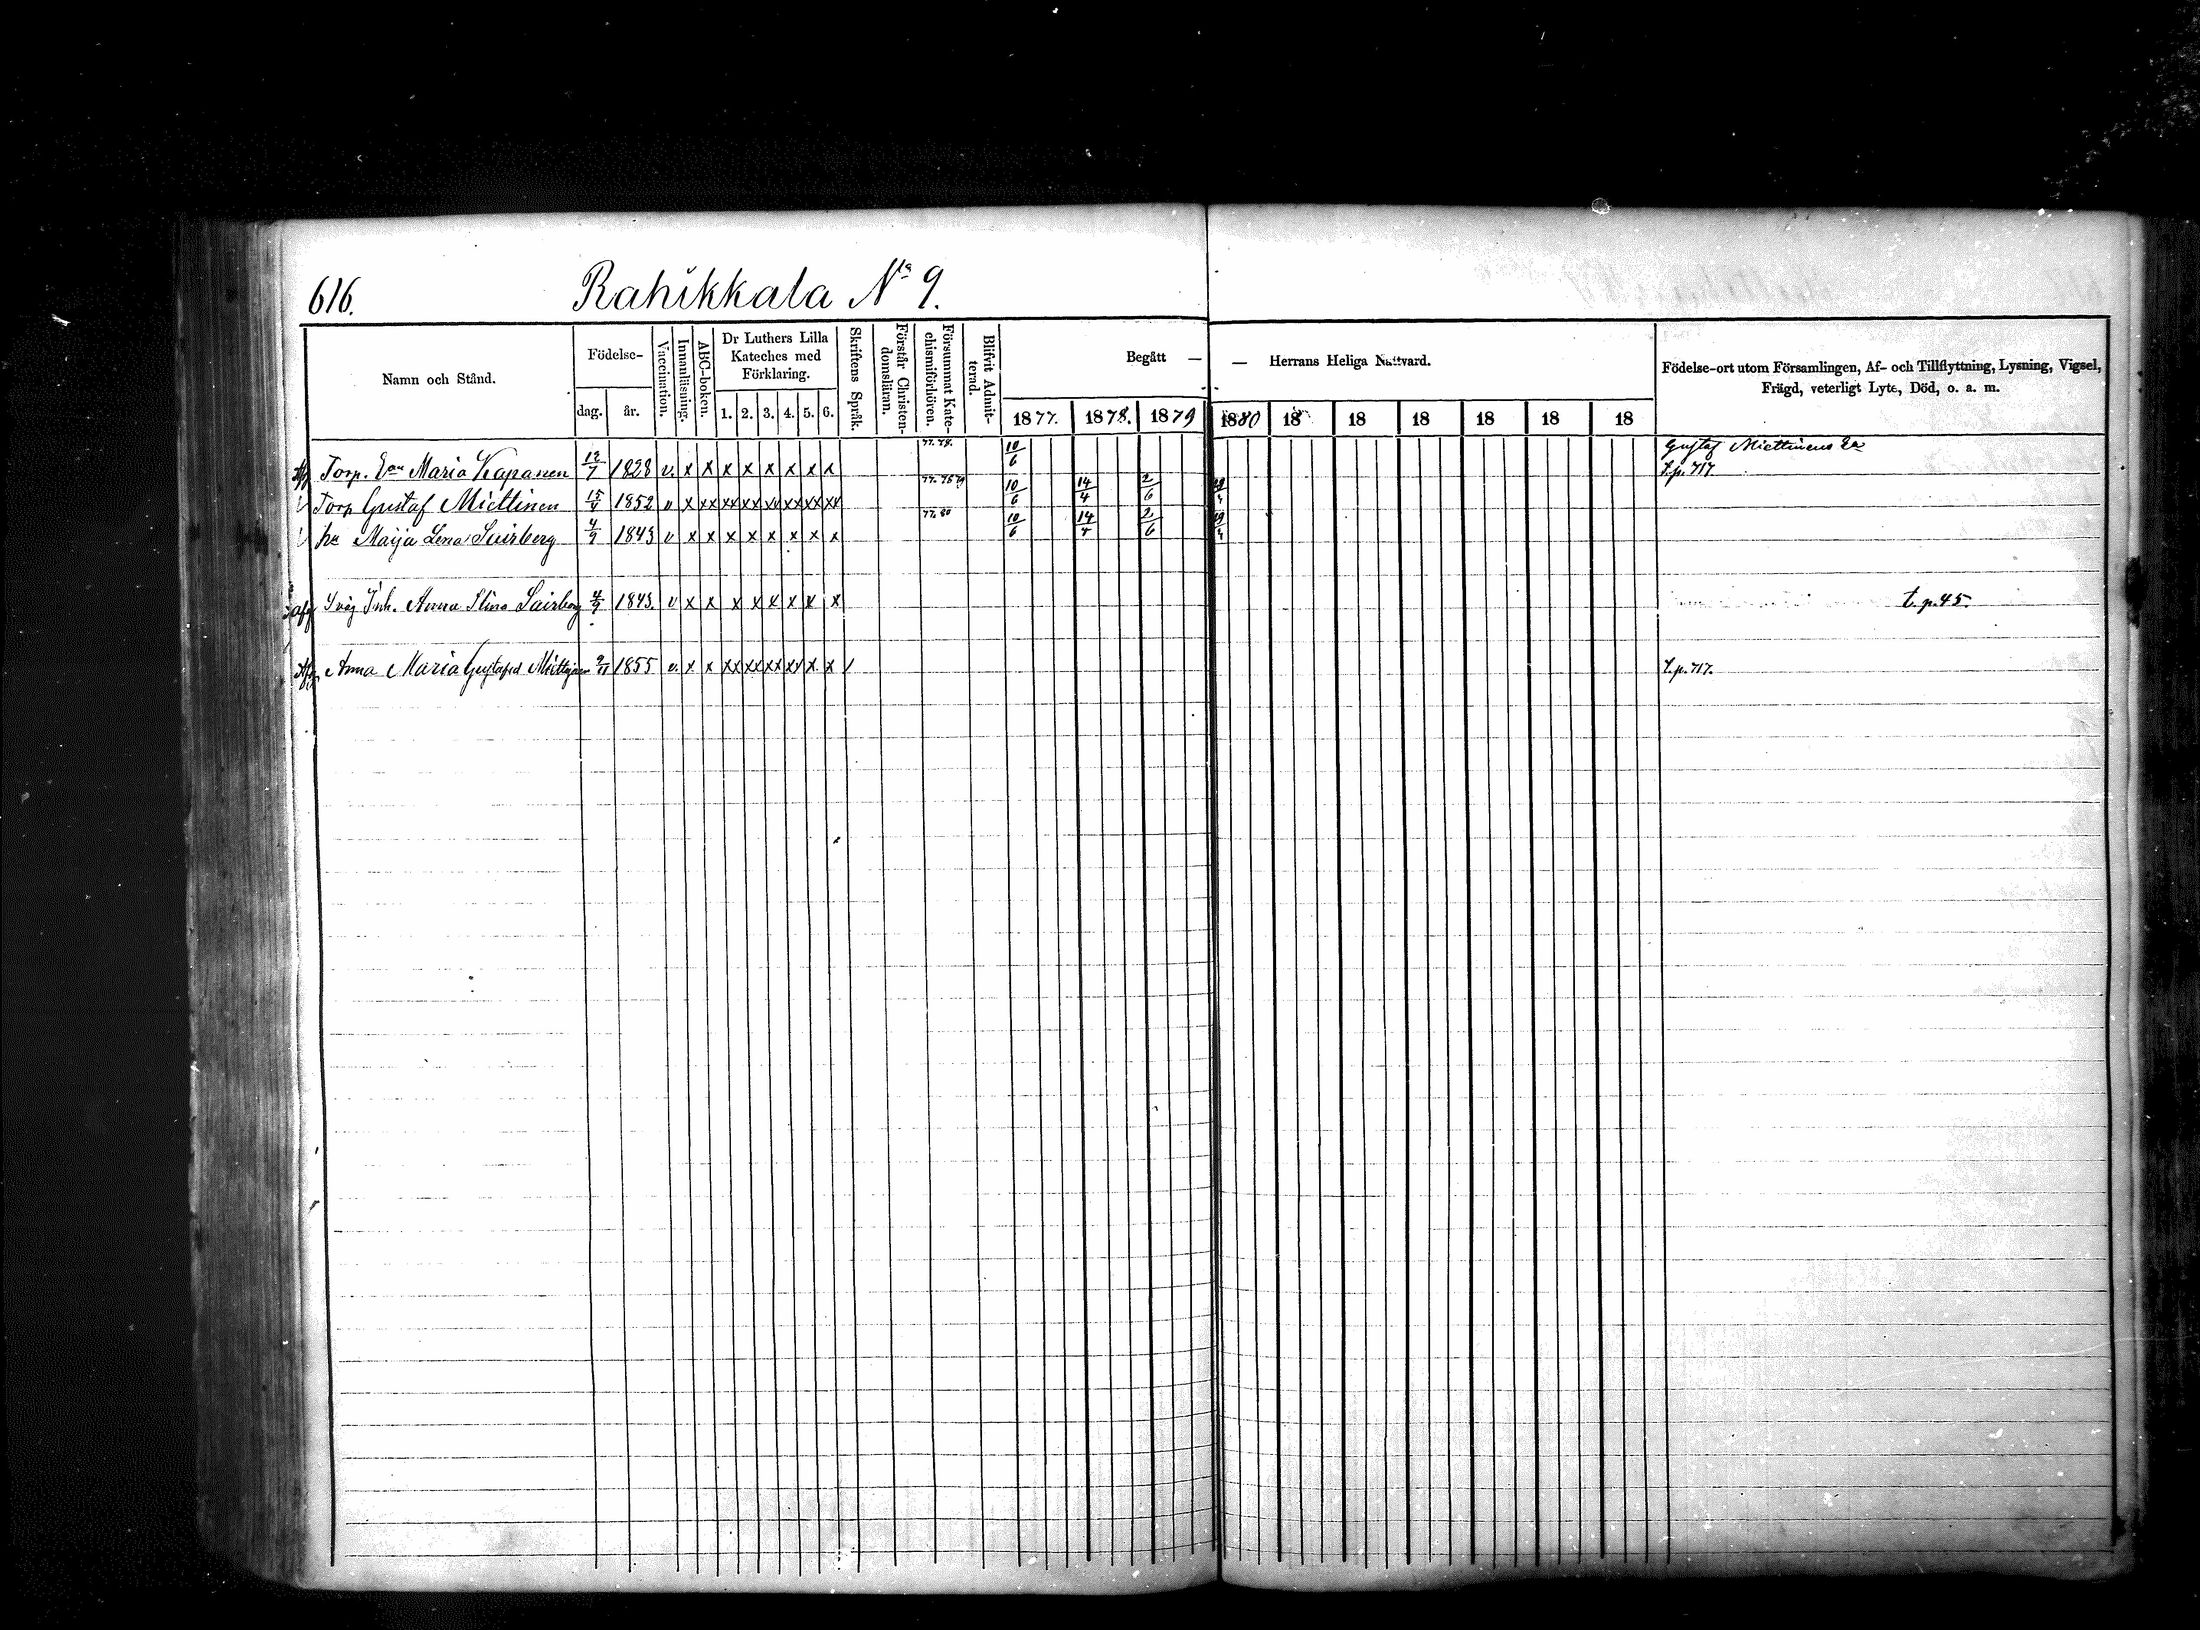 616. Rahikkala No 9.
Namn och Stånd. Födelse- Vaccination. Innanläsning. ABC-boken. Dr Luthers Lilla Kateches med Förklaring. Skriftens Språk. Förstår Christendomsläran. Försummat Katechismiförhören. Blifvit Admitterad. Begått — — Herrans Heliga Nattvard. Födelse-ort utom Församlingen, Af- och Tillflyttning, Lysning, Vigsel,
Frägd, veterligt Lyte, Död, o. a. m.
dag. år. 1. 2. 3. 4. 5. 6. 1877. 1878. 1879 1880 18 18 18 18 18 18
77. 78. Gustaf Miettinens Ea
Torp. Ean Maria Kapanen 12/7 1828 v. x x x x x x x x 10/6 t.p. 717.
77. 78 79
Torp Gustaf Miettinen 15/4 1852 v x xx xx xx xx xx xx xx 10/6 14/4 2/6
77. 80
hu Maija Lena Suirberg 4/9 1843 v x x x x x x x x 10/6 14/4 2/6 19/4
Anna Stina 4/9 1843. v x x x x x x x x t. p. 45.
Anna Maria Gustafsd 1855 v. x x xx xx xx xx x x / t.p. 717.